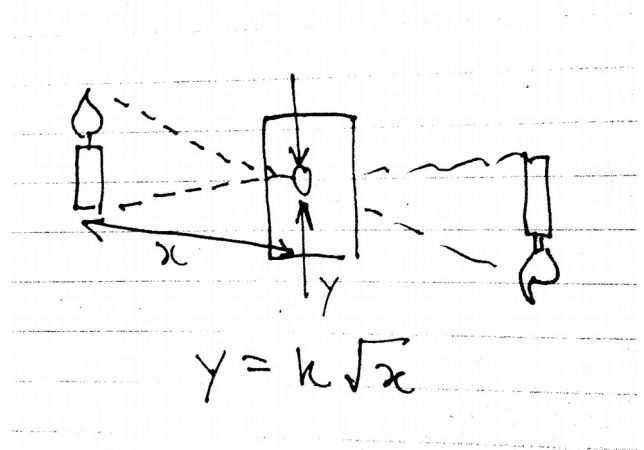 x
y
y = k√x